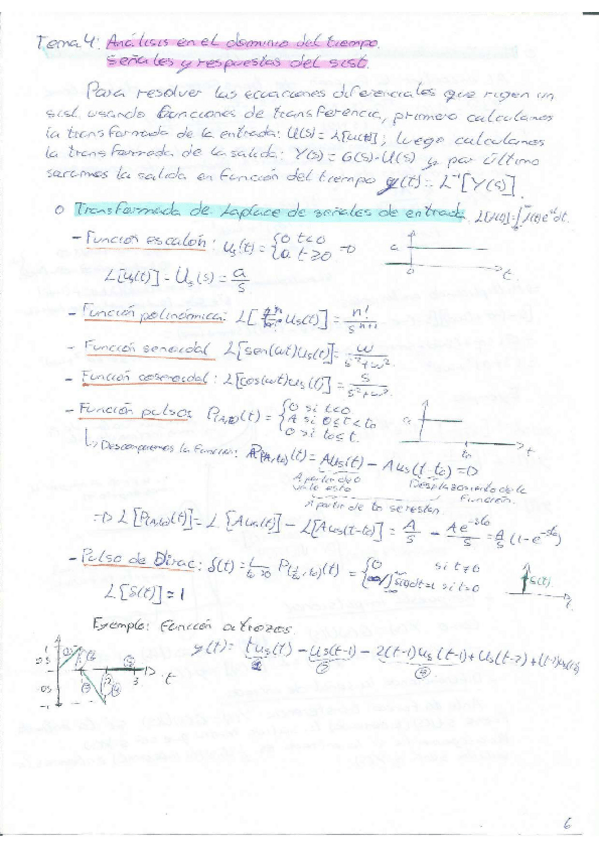 Tema 4: Análisis en el dominio del tiempo.
Señales y respuestas del sist.
Para resolver las ecuaciones diferenciales que rigen un
sist. usando funciones de transferencia, primero calculamos
la transformada de la entrada: U(s) = L[u(t)]; luego calculamos
la transformada de la salida: Y(s) = G(s)·U(s) y por último
sacamos la salida en función del tiempo y(t) = L⁻¹[Y(s)].
o Transformada de Laplace de señales de entrada.
- Función escalón: us(t) = {0 t<0
a t≥0
a
0
t
L[us(t)] = Us(s) = a/s
- Función polinómica: us(t)] = n!/sⁿ⁺¹
- Función senoidal L[sen(wt)us(t)] = w/s²+w².
- Función cosenoidal: L[cos(wt)us(t)] = s/s²+w².
- Función pulsos P(A,t0)(t) = {0 si t<0
A si 0≤t<t0
0 si t0≤t.
a
t0
t
Descomponemos la función: P(A,t0)(t) = Aus(t) - Aus(t-t0) =D
A partir de 0
vale esto
Desplazamiento de la
función.
A partir de t0 se restan
=D L[P(A,t0)(t)] = L[Aus(t)] - L[Aus(t-t0)] = A/s - Ae^-st0/s = A/s (1-e^-st0)
- Pulso de Dirac: δ(t) = P(1/t0, t0)(t) = {0 si t≠0
si t=0
δ(t)
L[δ(t)] = 1
Ejemplo: Función a trozos
y(t) = tus(t) - us(t-1) - 2(t-1)us(t-1) + us(t-2) +
1
0.5
-0.5
-1
2
3
t
6